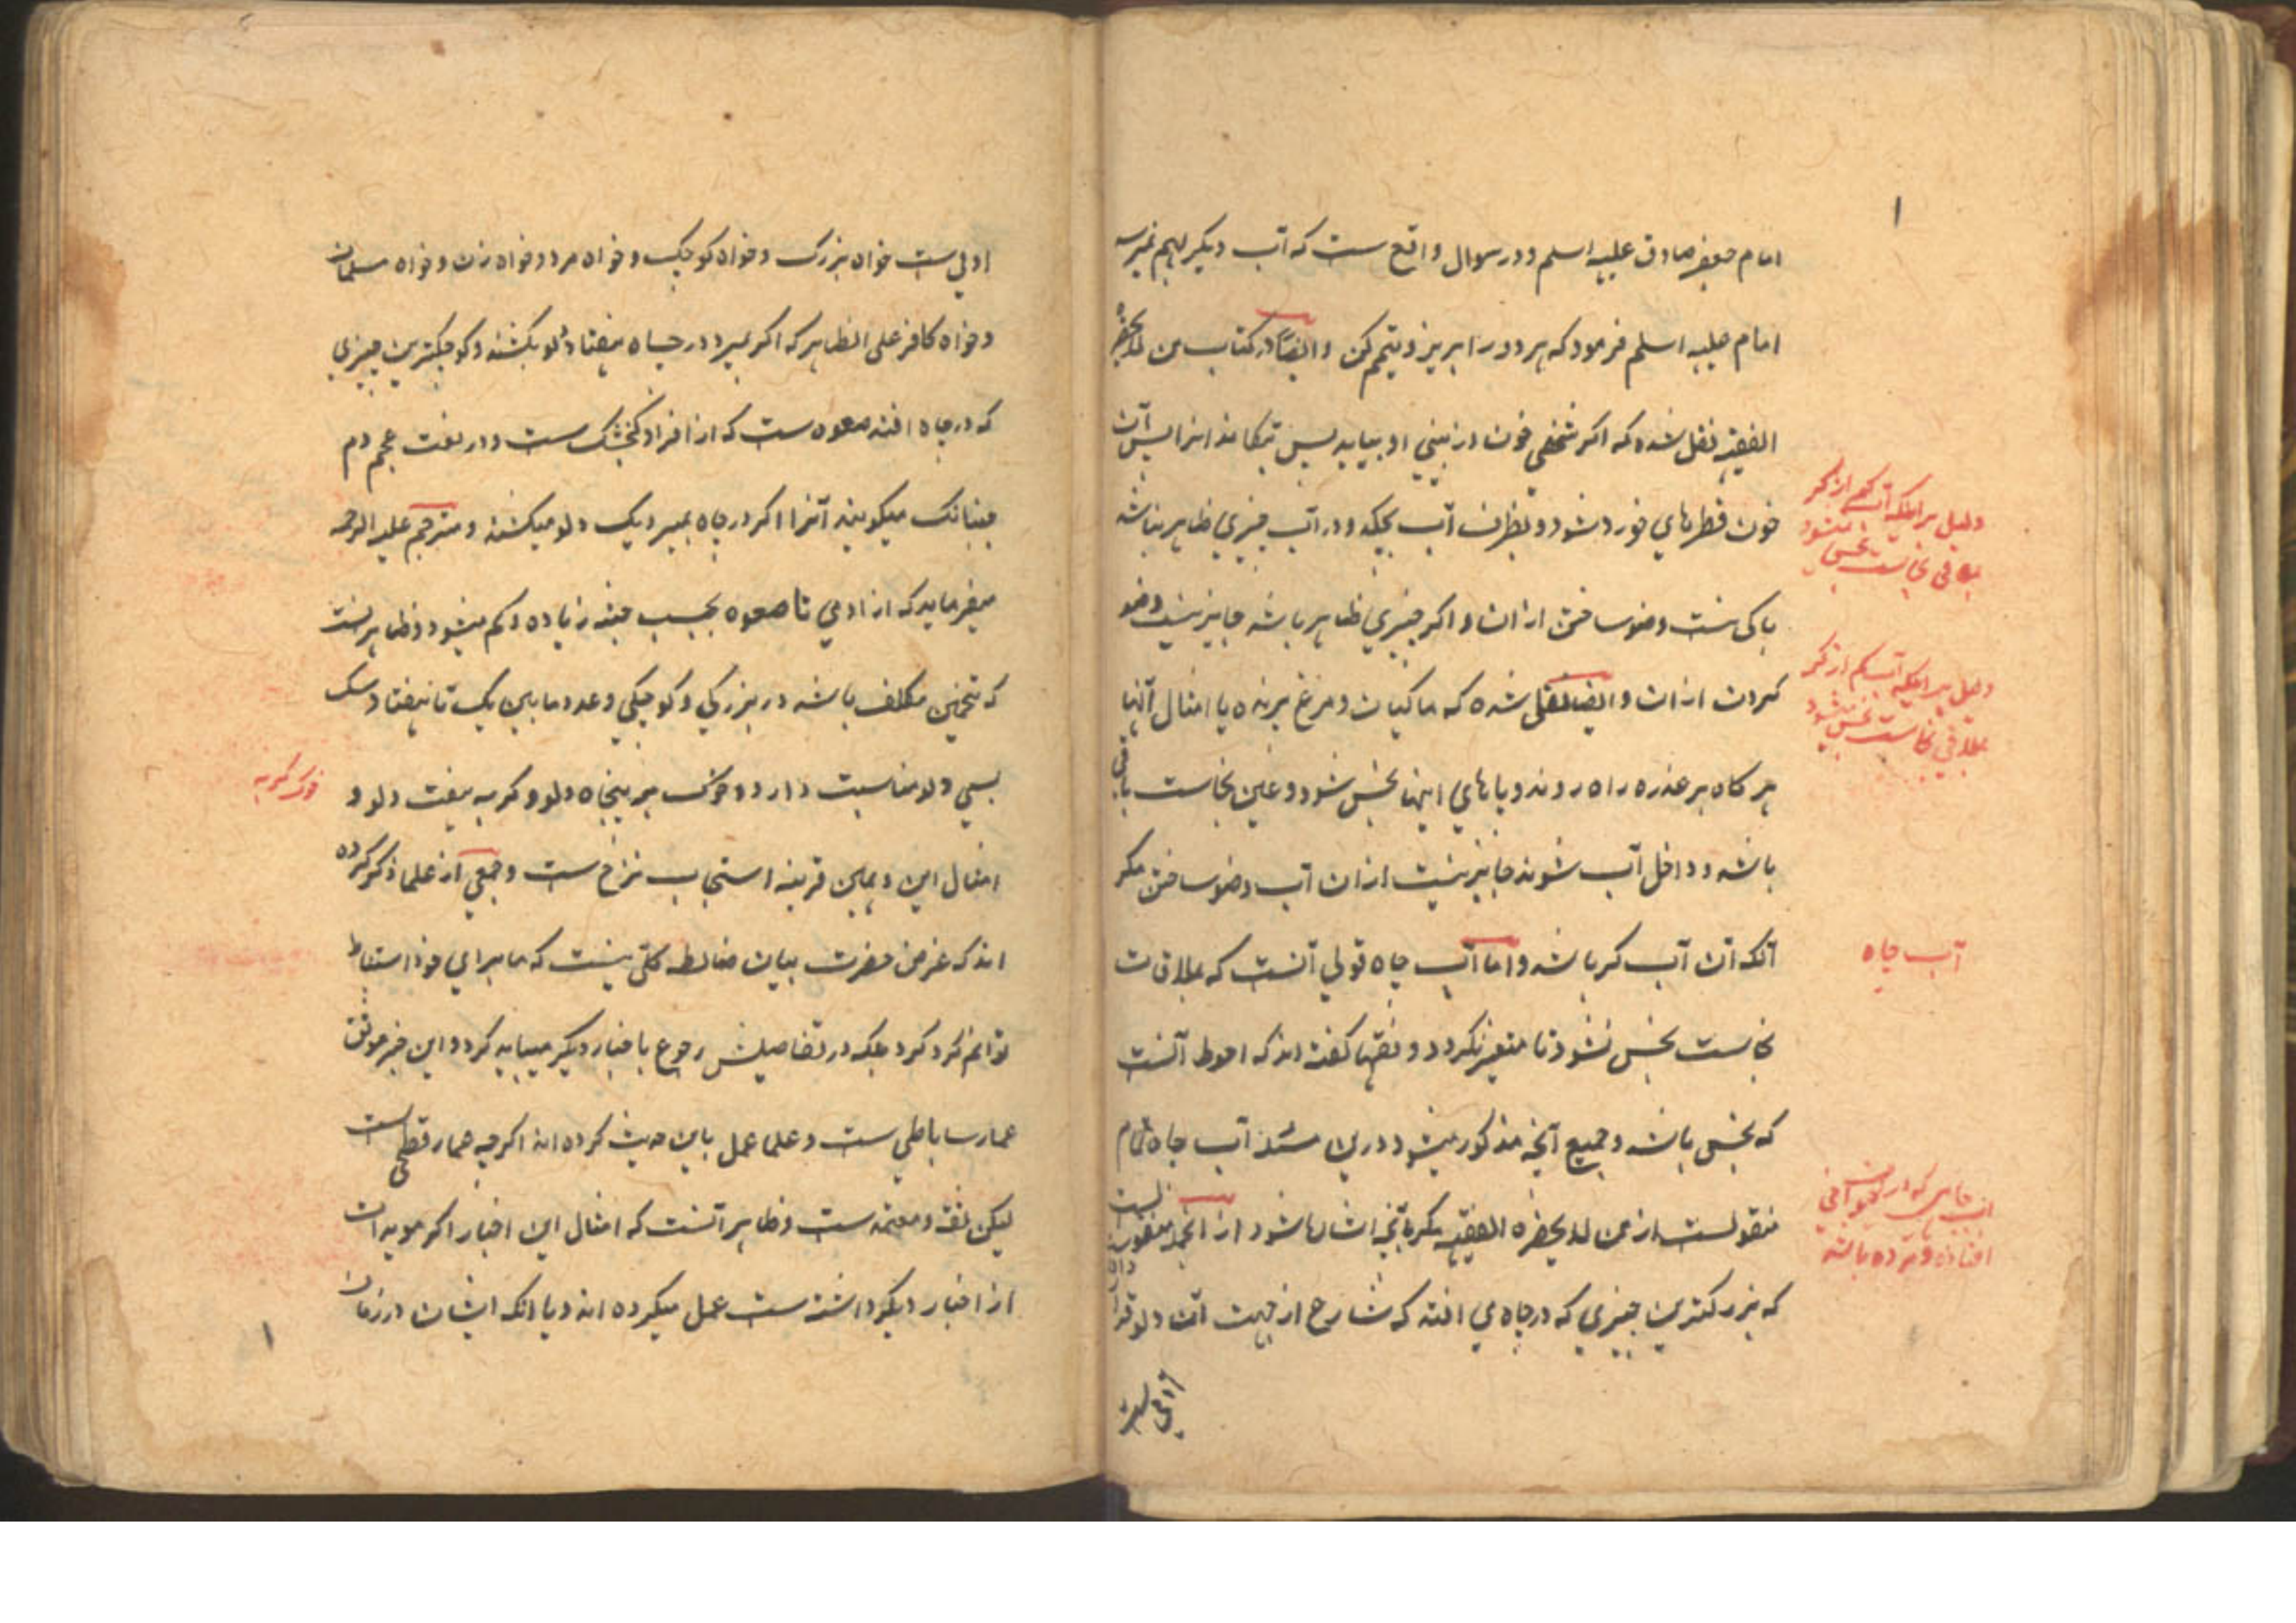 امام جعفر صادق علیه اسلم و در سوال واقع ست که آب دیگر بهم نمیرسد
امام علیه اسلم فرمود که هر دو را بریز و تیمم کن و ایضاً در کتاب من لا یحضره
الفقیه نقل شده که اگر شخصی خون از بینی او بیاید پس آن
خون قطرهای خورد شود و بظرف آب بچکد و در آب چیزی ظاهر نباشد
باکی نیست وضو ساختن ازان و اگر چیزی ظاهر باشد جایز نیست وضو
کردن ازان و ایضا نقل شده که ماکیان و مرغ پرنده یا امثال آنها
هر گاه بر عذره راه روند و پاهای اینها نجس شود و عین نجاست باقی
باشد و داخل آب شوند جایز نیست ازان آب وضو ساختن مگر
آنکه آن آب کر باشد و اما آب چاه قولی آنست که بملاقات
نجاست نجس نشود تا متغیر نگردد و فقها گفته اند که احوط آنست
که نجس باشد و جمیع آنچه مذکور میشود درین مسئله آب چاه تمام
منقولست از من لا یحضره الفقیه مگر بآنچه اشارها شود از انجمله منقولست
که بزرگترین چیزی که در چاه می افتد که شارع از جهت آن دلو قرار داده
آدمی ست
دلیل بر اینکه آب کم از کر
بملاقی نجاست نجس میشود
دلیل بر اینکه آب کم از کر
بملاقی نجاست نجس میشود
آب چاه
آب چاهی که در آن
افتاده و مرده باشد
اولی ست خواه بزرگ و خواه کوچک و خواه مرد و خواه زن و خواه مسلمان
و خواه کافر علی الظاهر که اگر بمیرد در چاه هفتاد دلو بکشند و کوچکترین چیزی
که در چاه افتد صعوه ست که از افراد کنجشک ست و در لغت عجم دم
جنبانک میکویند آنرا اگر در چاه بمیرد یک دلو میکشند و مترجم علیه الرحمه
میفرماید که از ادمی تا صعوه بحسب جثه زیاده و کم میشود و ظاهر نیست
که تخمین مکلف باشد در بزرکی و کوچکی و عدد ما بین یک تا هفتاد و سک
بسی دلو مناسبت دارد و خوک بر پنجاه دلو و کربه هفت دلو و
امثال این و همین قرینه استحباب نزح ست و جمعی از علما ذکر کرده
اند که غرض حضرت بیان ضابطه کلی نیست که ما برای خود استنباط
توانم کرد کرد بلکه در تفاصیلش رجوع باخبار دیگر میباید کرد و این خبر موثق
عمار ساباطی ست و علما عمل باین حدیث کرده اند اگر چه عمار فطحی ست
لیکن ثقه و معتمد ست و ظاهر آنست که امثال این اخبار اکر مویدات
از اخبار دیگر داشته ست عمل میکرده اند و یا انکه ایشان در زمان
خوک کربه